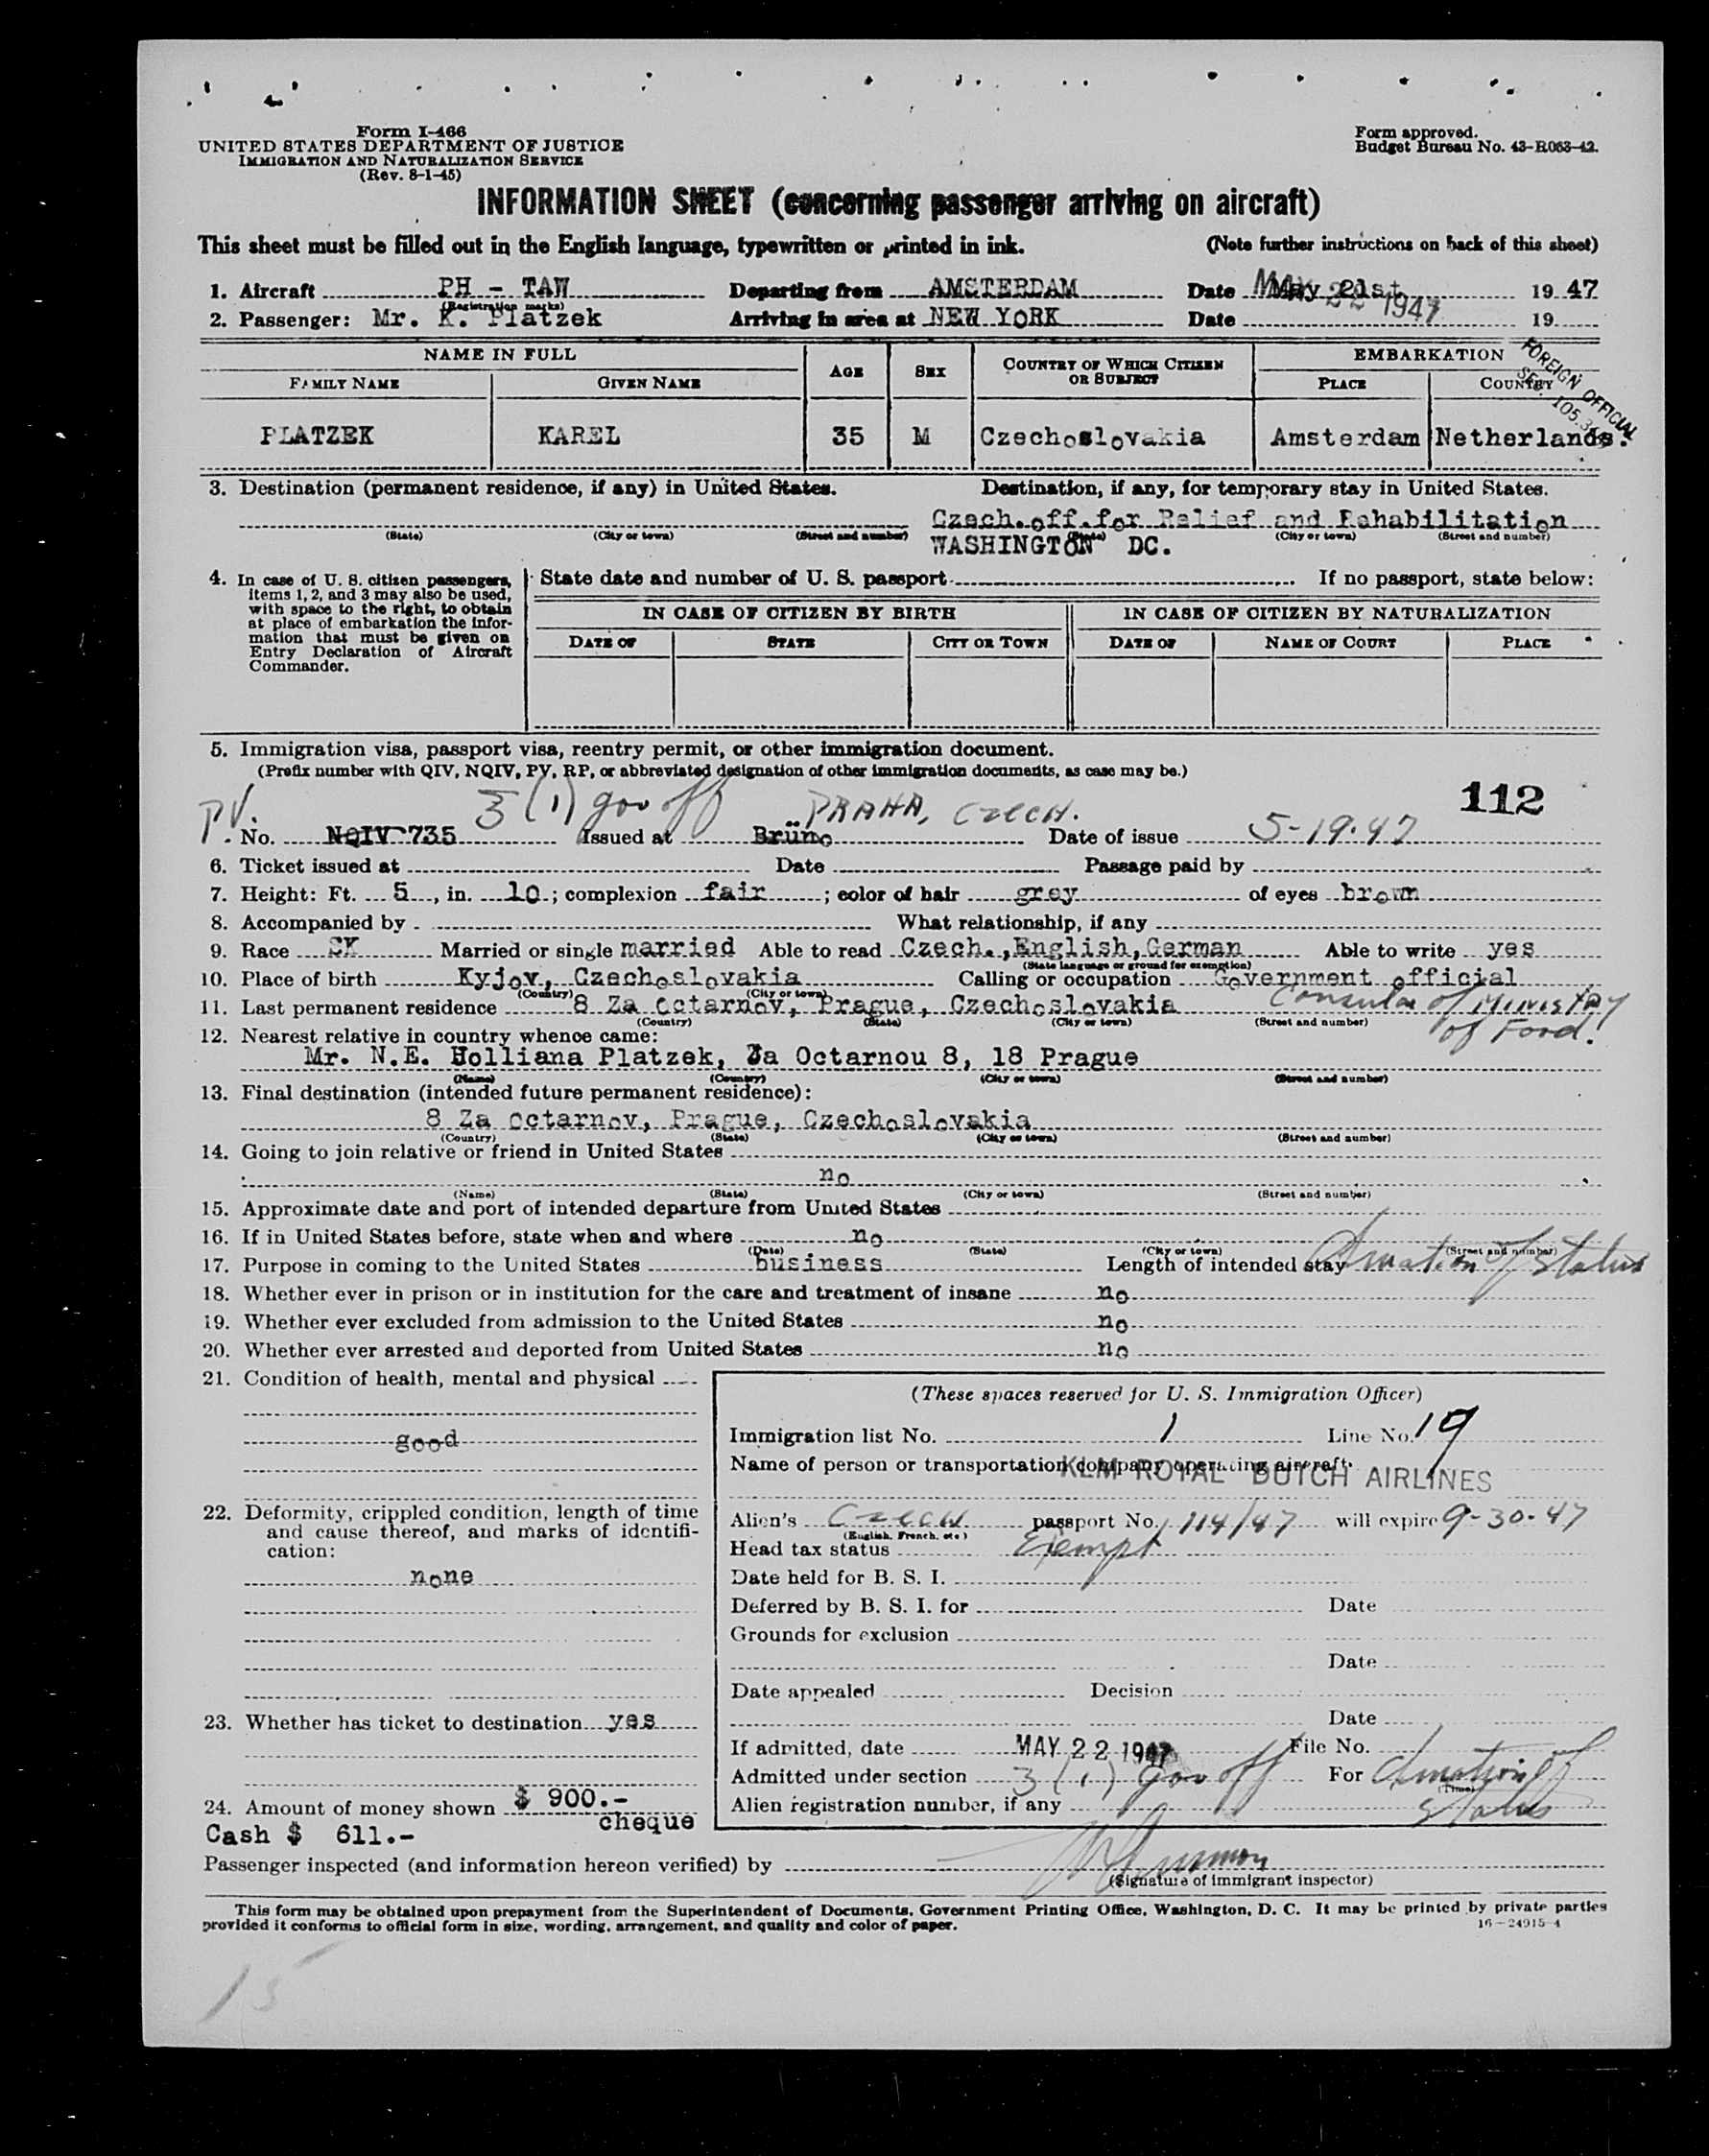 Form I-466
UNITED STATES DEPARTMENT OF JUSTICE
IMMIGRATION AND NATURALIZATION SERVICE
(Rev. 8-1-45)
Form approved.
Budget Bureau No. 43-R063-42.
INFORMATION SHEET (concerning passenger arriving on aircraft)
This sheet must be filled out in the English language, typewritten or printed in ink. (Note further instructions on back of this sheet)
1. Aircraft PH - TAW Departing from AMSTERDAM Date May 21st 19 47
(Registration marks)
MAY 22 1947
2. Passenger: Mr. K. Platzek Arriving in area at NEW YORK Date 19
NAME IN FULL AGE SEX COUNTRY OF WHICH CITIZEN OR SUBJECT EMBARKATION
FAMILY NAME GIVEN NAME PLACE COUNTRY
FOREIGN OFFICIAL
SEC. 105.3
PLATZEK KAREL 35 M Czechoslovakia Amsterdam Netherlands.
3. Destination (permanent residence, if any) in United States. Destination, if any, for temporary stay in United States.
Czech.off.for Relief and Rehabilitation
(State) (City or town) (Street and number) (State) (City or town) (Street and number)
WASHINGTON DC.
4. In case of U. S. citizen passengers, items 1, 2, and 3 may also be used, with space to the right, to obtain at place of embarkation the information that must be given on Entry Declaration of Aircraft Commander.
State date and number of U. S. passport If no passport, state below:
IN CASE OF CITIZEN BY BIRTH IN CASE OF CITIZEN BY NATURALIZATION
DATE OF STATE CITY OR TOWN DATE OF NAME OF COURT PLACE
5. Immigration visa, passport visa, reentry permit, or other immigration document.
(Prefix number with QIV, NQIV, PV, RP, or abbreviated designation of other immigration documents, as case may be.)
112
PV. 3(1) gov off PRAHA, CZECH.
No. NQIV 735 Issued at Brüno Date of issue 5-19-47
6. Ticket issued at Date Passage paid by
7. Height: Ft. 5, in. 10; complexion fair; color of hair grey of eyes brown
8. Accompanied by What relationship, if any
9. Race CK Married or single married Able to read Czech.,English,German Able to write yes
(State language or ground for exemption)
10. Place of birth Kyjov, Czechoslovakia Calling or occupation Government official
(Country) (City or town)
Consular of Ministry
of Food.
11. Last permanent residence 8 Za Octarnov, Prague, Czechoslovakia
(Country) (State) (City or town) (Street and number)
12. Nearest relative in country whence came:
Mr. N.E. Holliana Platzek, Za Octarnou 8, 18 Prague
(Name) (Country) (City or town) (Street and number)
13. Final destination (intended future permanent residence):
8 Za Octarnov, Prague, Czechoslovakia
(Country) (State) (City or town) (Street and number)
14. Going to join relative or friend in United States
no
(Name) (State) (City or town) (Street and number)
15. Approximate date and port of intended departure from United States
16. If in United States before, state when and where no
(Date) (State) (City or town) (Street and number)
17. Purpose in coming to the United States business Length of intended stay Duration of Status
18. Whether ever in prison or in institution for the care and treatment of insane no
19. Whether ever excluded from admission to the United States no
20. Whether ever arrested and deported from United States no
21. Condition of health, mental and physical
good
22. Deformity, crippled condition, length of time and cause thereof, and marks of identification:
none
23. Whether has ticket to destination yes
24. Amount of money shown $ 900.-
cheque
Cash $ 611.-
(These spaces reserved for U. S. Immigration Officer)
Immigration list No. 1 Line No. 19
Name of person or transportation company operating aircraft
KLM ROYAL DUTCH AIRLINES
Alien's Czech passport No. 114/47 will expire 9-30-47
(English, French, etc.)
Head tax status Exempt
Date held for B. S. I.
Deferred by B. S. I. for Date
Grounds for exclusion
Date
Date appealed Decision
Date
If admitted, date MAY 22 1947 File No.
Admitted under section 3(1) gov off For duration of
(Time)
Alien registration number, if any status
Passenger inspected (and information hereon verified) by
(Signature of immigrant inspector)
This form may be obtained upon prepayment from the Superintendent of Documents, Government Printing Office, Washington, D. C. It may be printed by private parties
provided it conforms to official form in size, wording, arrangement, and quality and color of paper. 16-24915-4
15